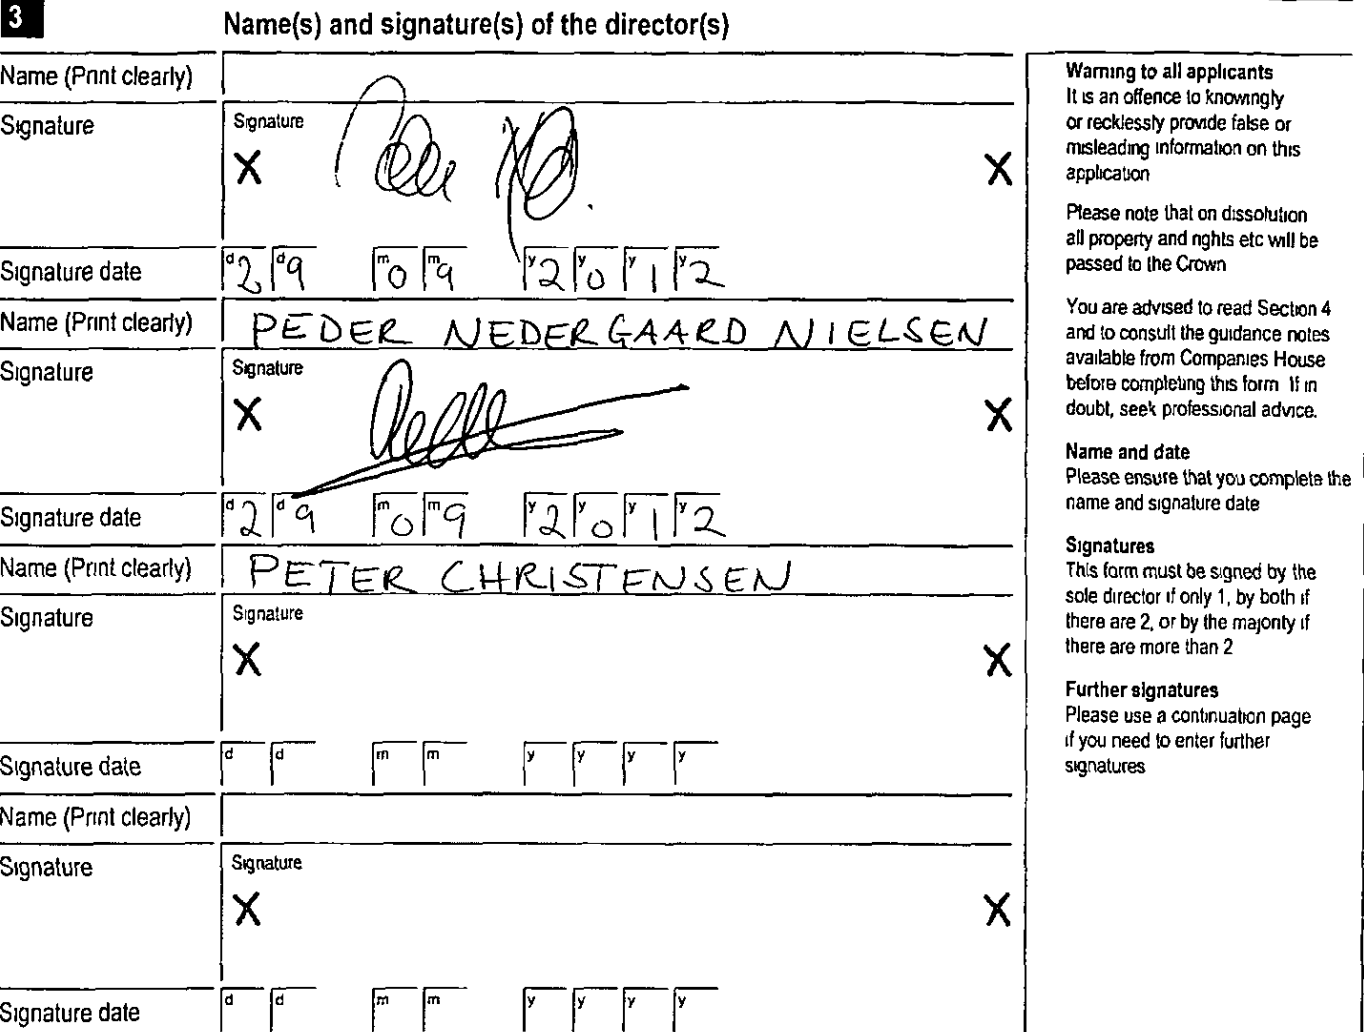 3 Name(s) and signature(s) of the director(s)
Name (Print clearly)
Signature Signature
X X
Signature date d2 d9 m0 m9 y2 y0 y1 y2
Name (Print clearly) PEDER NEDERGAARD NIELSEN
Signature Signature
X X
Signature date d2 d9 m0 m9 y2 y0 y1 y2
Name (Print clearly) PETER CHRISTENSEN
Signature Signature
X X
Signature date d d m m y y y y
Name (Print clearly)
Signature Signature
X X
Signature date d d m m y y y y
Warning to all applicants
It is an offence to knowingly
or recklessly provide false or
misleading information on this
application
Please note that on dissolution
all property and rights etc will be
passed to the Crown
You are advised to read Section 4
and to consult the guidance notes
available from Companies House
before completing this form If in
doubt, seek professional advice.
Name and date
Please ensure that you complete the
name and signature date
Signatures
This form must be signed by the
sole director if only 1, by both if
there are 2, or by the majority if
there are more than 2
Further signatures
Please use a continuation page
if you need to enter further
signatures